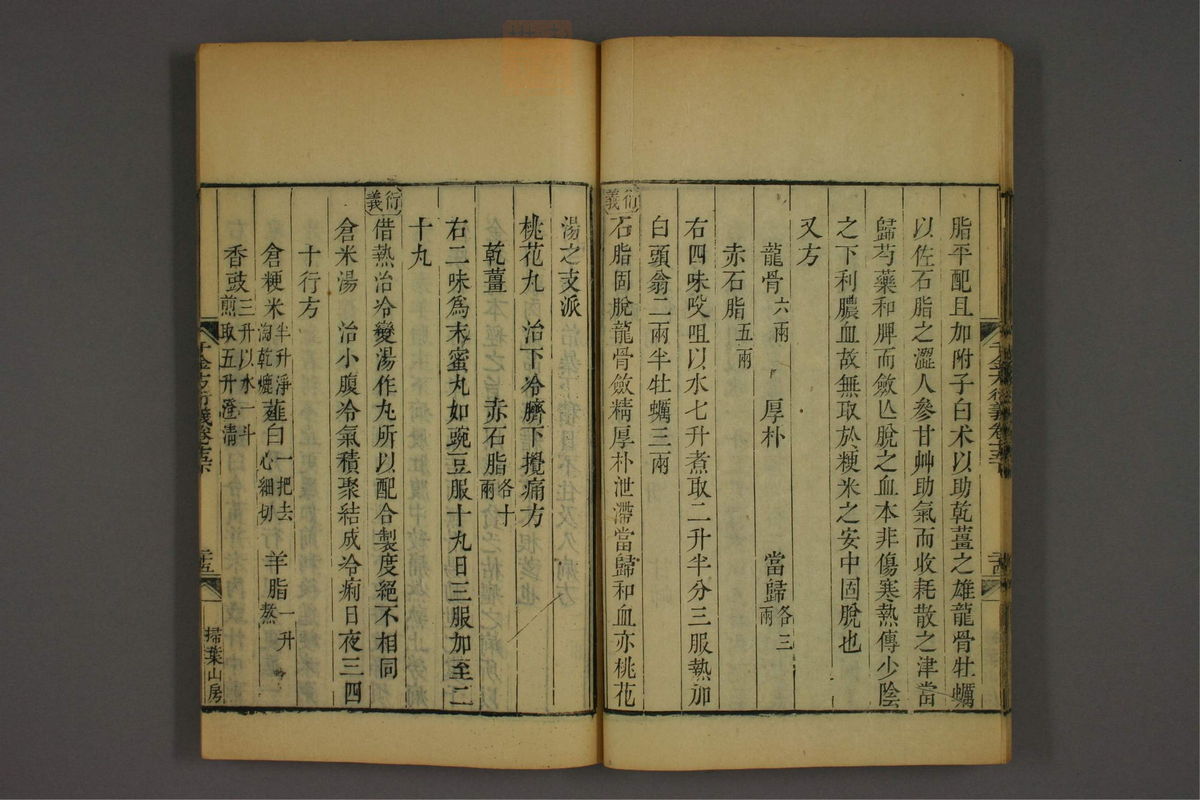 脂平配且加附子白朮以助乾薑之雄龍骨牡蠣
以佐石脂之澀人參甘艸助氣而收耗散之津當
歸芍藥和脾而斂亾脫之血本非傷寒熱傳少陰
之下利膿血故無取於粳米之安中固脫也
又方
龍骨六兩 厚朴 當歸各三兩
赤石脂五兩
右四味㕮咀以水七升煮取二升半分三服熱加
白頭翁二兩半牡蠣三兩
衍義
石脂固脫龍骨斂精厚朴泄滯當歸和血亦桃花
湯之支派
桃花丸 治下冷臍下攪痛方
乾薑 赤石脂各十兩
右二味爲末蜜丸如豌豆服十丸日三服加至二
十丸
衍義
借熱治冷變湯作丸所以配合製度絕不相同
倉米湯 治小腹冷氣積聚結成冷痢日夜三四
十行方
倉粳米半升淨淘乾爐 薤白一把去心細切 羊脂一升熬
香豉三升以水一斗煎取五升澄清
千金方衍義卷
掃葉山房